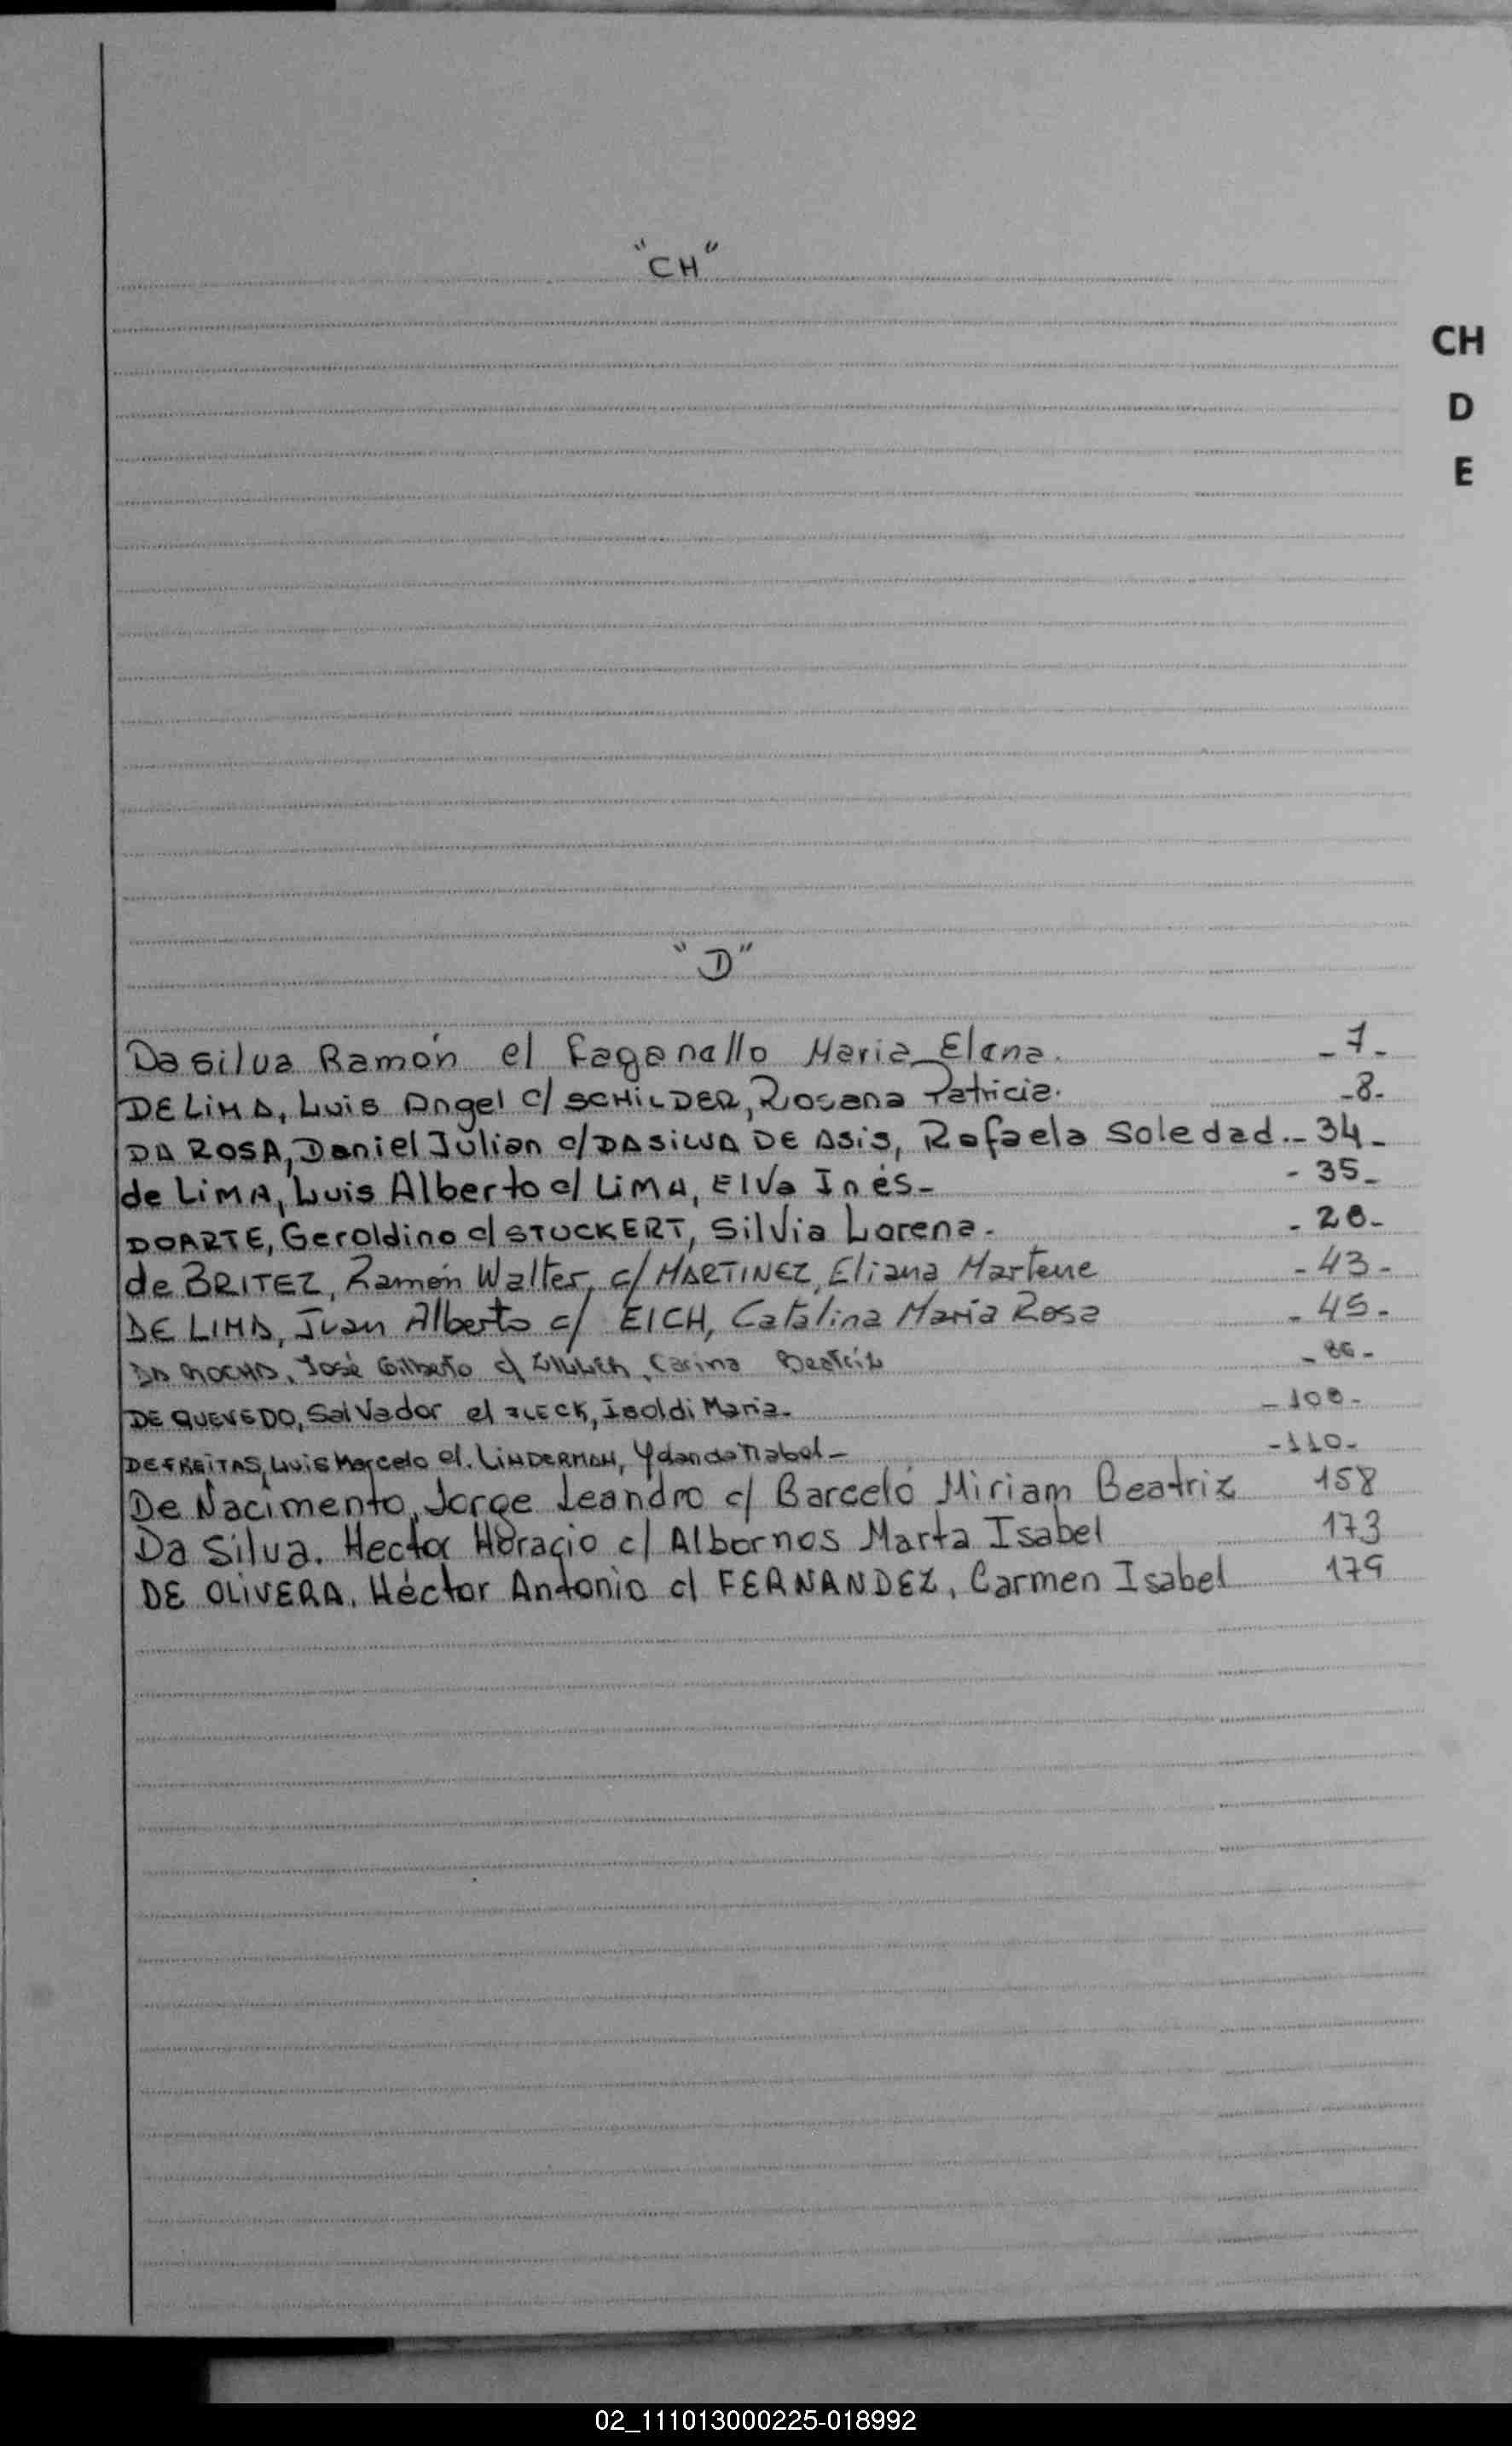 "CH"
CH
D
E
"D"
Da silva Ramón c/ Faganello Maria Elena. - 7 -
DE LIMA, Luis Angel c/ SCHILDER, Rosana Patricia. - 8 -
DA ROSA, Daniel Julian c/ DA SILVA DE ASIS, Rafaela Soledad. - 34 -
de LIMA, Luis Alberto c/ LIMA, Elva Inés - - 35 -
DOARTE, Geroldino c/ STOCKERT, Silvia Lorena. - 28 -
de BRITEZ, Ramón Walter, c/ MARTINEZ, Eliana Marlene - 43 -
DE LIMA, Juan Alberto c/ EICH, Catalina Maria Rosa - 45 -
DA ROCHA, José Gilberto c/ Carina Beatriz - 86 -
DE QUEVEDO, Salvador c/ FLECK, Isoldi Maria. - 108 -
DE FREITAS, Luis Marcelo c/. LINDERMAN, Ydanda Mabel - - 110 -
De Nacimento, Jorge Leandro c/ Barceló Miriam Beatriz 158
Da Silva. Hector Horacio c/ Albornos Marta Isabel 173
DE OLIVERA. Héctor Antonio c/ FERNANDEZ, Carmen Isabel 179
02_111013000225-018992